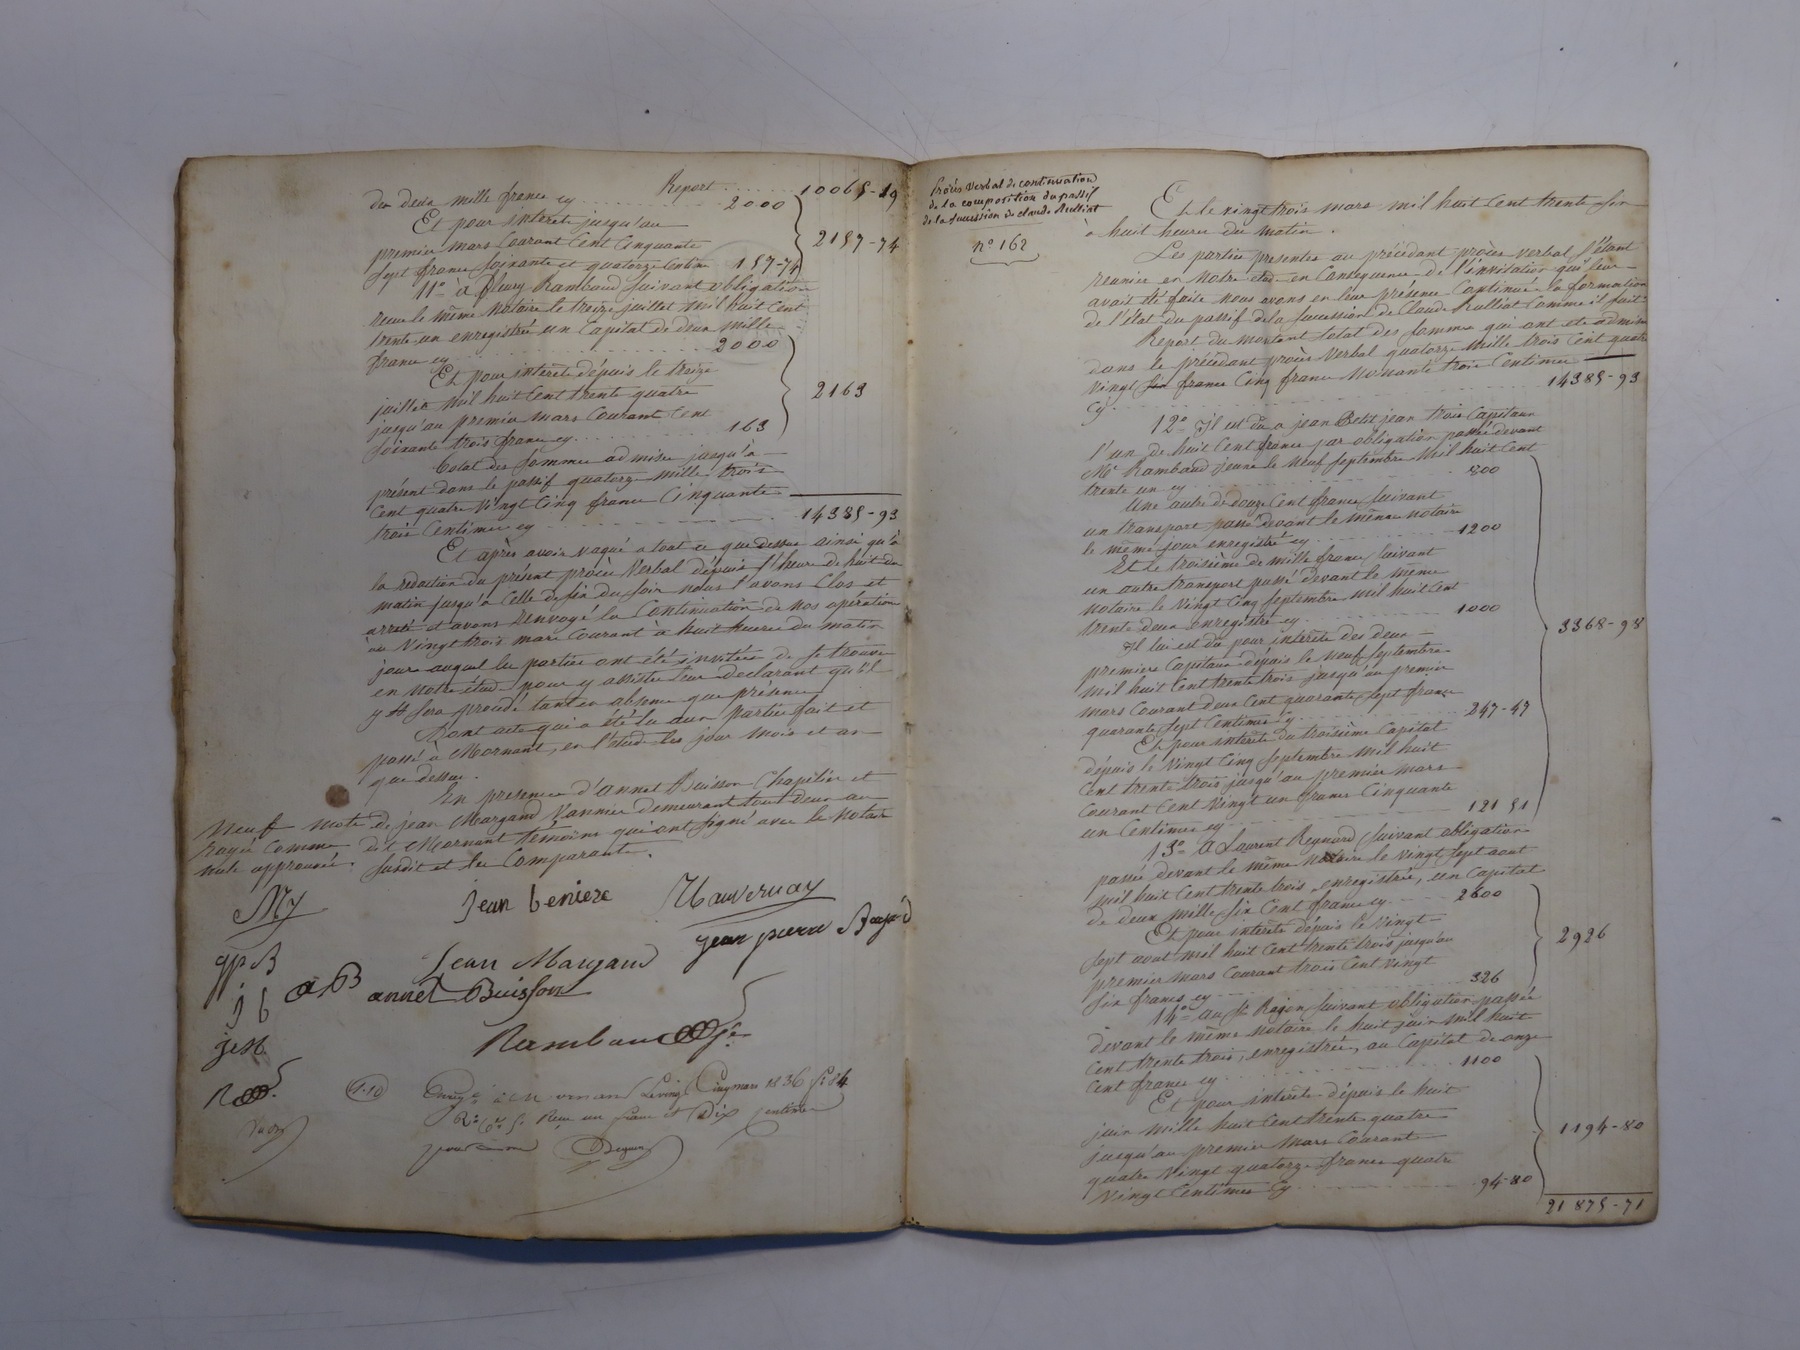 Report ........ 10065-19
de deux mille francs cy ........ 2000
Et pour intérêts jusqu'au
premier mars courant cent cinquante
sept francs soixante et quatorze centimes 157-74
2157-74
11° à fleury Rambaud suivant obligation
reçue le même Notaire le treize juillet mil huit cent
trente un enregistrée un Capital de deux mille
francs cy ........ 2000
Et pour intérêts dépuis le treize
juillet mil huit cent trente quatre
jusqu'au premier mars courant cent
soixante trois francs cy ........ 163
2163
Total des sommes admises jusqu'à
présent dans le passif quatorze mille trois
cent quatre vingt cinq francs Cinquante
trois Centimes cy ........ 14385-93
Et après avoir vaqué a tout ce que dessus ainsi qu'à
la redaction du présent procès Verbal dépuis l'heure de huit du
matin jusqu'à celle de six du soir nous l'avons Clos et
arreté et avons renvoyé la Continuation de nos opérations
au Vingt trois mars Courant à huit heures du matin
jour auquel les parties ont été invitées de se trouver
en notre étude pour y assister leur declarant qu'il
y sera procédé tant en absence que présence
Dont acte qui a été lu aux parties fait et
passé à Mornant, en l'étude les jour mois et an
que dessus.
En presence d'annet Buisson Chapelier et
de jean Margand Vannier demeurant tous deux au
dit Mornant témoins qui ont signé avec le Notaire
susdit et les Comparants.
Neuf mots
rayés comme
nuls approuvés.
jean beniere
Mauvernay
jean pierre
Jean Margand
annet Buisson
AB
Rambaud jne
1.10
Enregté à Mornant Le vingt Cinq mars 1836 fo 84
Ro Reçu un franc et Dix centimes
pour dixième
Procès Verbal de continuation
de la composition du passif
de la succession de claude Rulliat
n° 162
Et le vingt trois mars mil huit cent trente six
à huit heures du matin.
Les parties presentes au précédent procès verbal s'étant
reunies en notre etude en Consequence de l'invitation qui leur
avait été faite nous avons en leur présence Continué la formation
de l'état du passif de la succession de Claude Rulliat Comme il suit
Report du montant total des sommes qui ont ete admises
dans le précédent procès Verbal quatorze mille trois cent quatre
vingt six francs Cinq francs Nonante trois Centimes
cy ........ 14385-93
12° Il est dû a jean Petit jean trois Capitaux
l'un de huit cent francs par obligation passée devant
Me Rambaud jeune le neuf septembre mil huit cent
trente un cy ........ 800
Une autre de douze cent francs suivant
un transport passé devant le même notaire
le même jour enregistré cy ........ 1200
Et le troisième de mille francs suivant
un autre transport passé devant le même
notaire le vingt cinq septembre mil huit cent
trente deux enregistré cy ........ 1000
Il lui est dû pour intérêts des deux
premiers Capitaux dépuis le neuf septembre
mil huit cent trente trois jusqu'au premier
mars Courant deux cent quarante sept francs
quarante sept Centimes cy ........ 247-47
Et pour intérêts du troisième Capital
dépuis le vingt cinq septembre mil huit
cent trente trois jusqu'au premier mars
Courant Cent Vingt un francs Cinquante
un Centimes cy ........ 121 51
3368-98
13° A Laurent Reynard suivant obligation
passée devant le même Notaire le vingt sept aout
mil huit cent trente trois, enregistrée, un Capital
de deux mille six cent francs cy ........ 2600
Et pour intérêts dépuis le vingt
sept aout mil huit cent trente trois jusqu'au
premier mars Courant trois cent vingt
six francs cy ........ 326
2926
14° au Sr Ragon suivant obligation passée
devant le même notaire le huit juin mil huit
cent trente trois, enregistrée, au Capital de onze
cent francs cy ........ 1100
Et pour intérêts dépuis le huit
juin mille huit cent trente quatre
jusqu'au premier mars Courant
quatre vingt quatorze francs quatre
vingt Centimes cy ........ 94-80
1194-80
21875-71